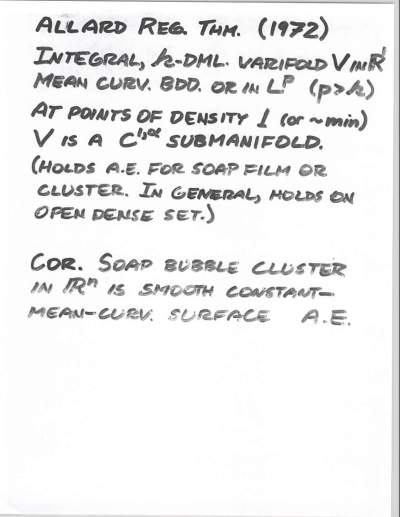 ALLARD REG. THM. (1972)
INTEGRAL, k-DML. VARIFOLD V IN ℝ
MEAN CURV. BDD. OR IN Lᵖ (p>k)
AT POINTS OF DENSITY 1 (or ~min)
V IS A C¹,ᵅ SUBMANIFOLD.
(HOLDS A.E. FOR SOAP FILM OR
CLUSTER. IN GENERAL, HOLDS ON
OPEN DENSE SET.)
COR. SOAP BUBBLE CLUSTER
IN ℝⁿ IS SMOOTH CONSTANT-
MEAN-CURV. SURFACE A.E.